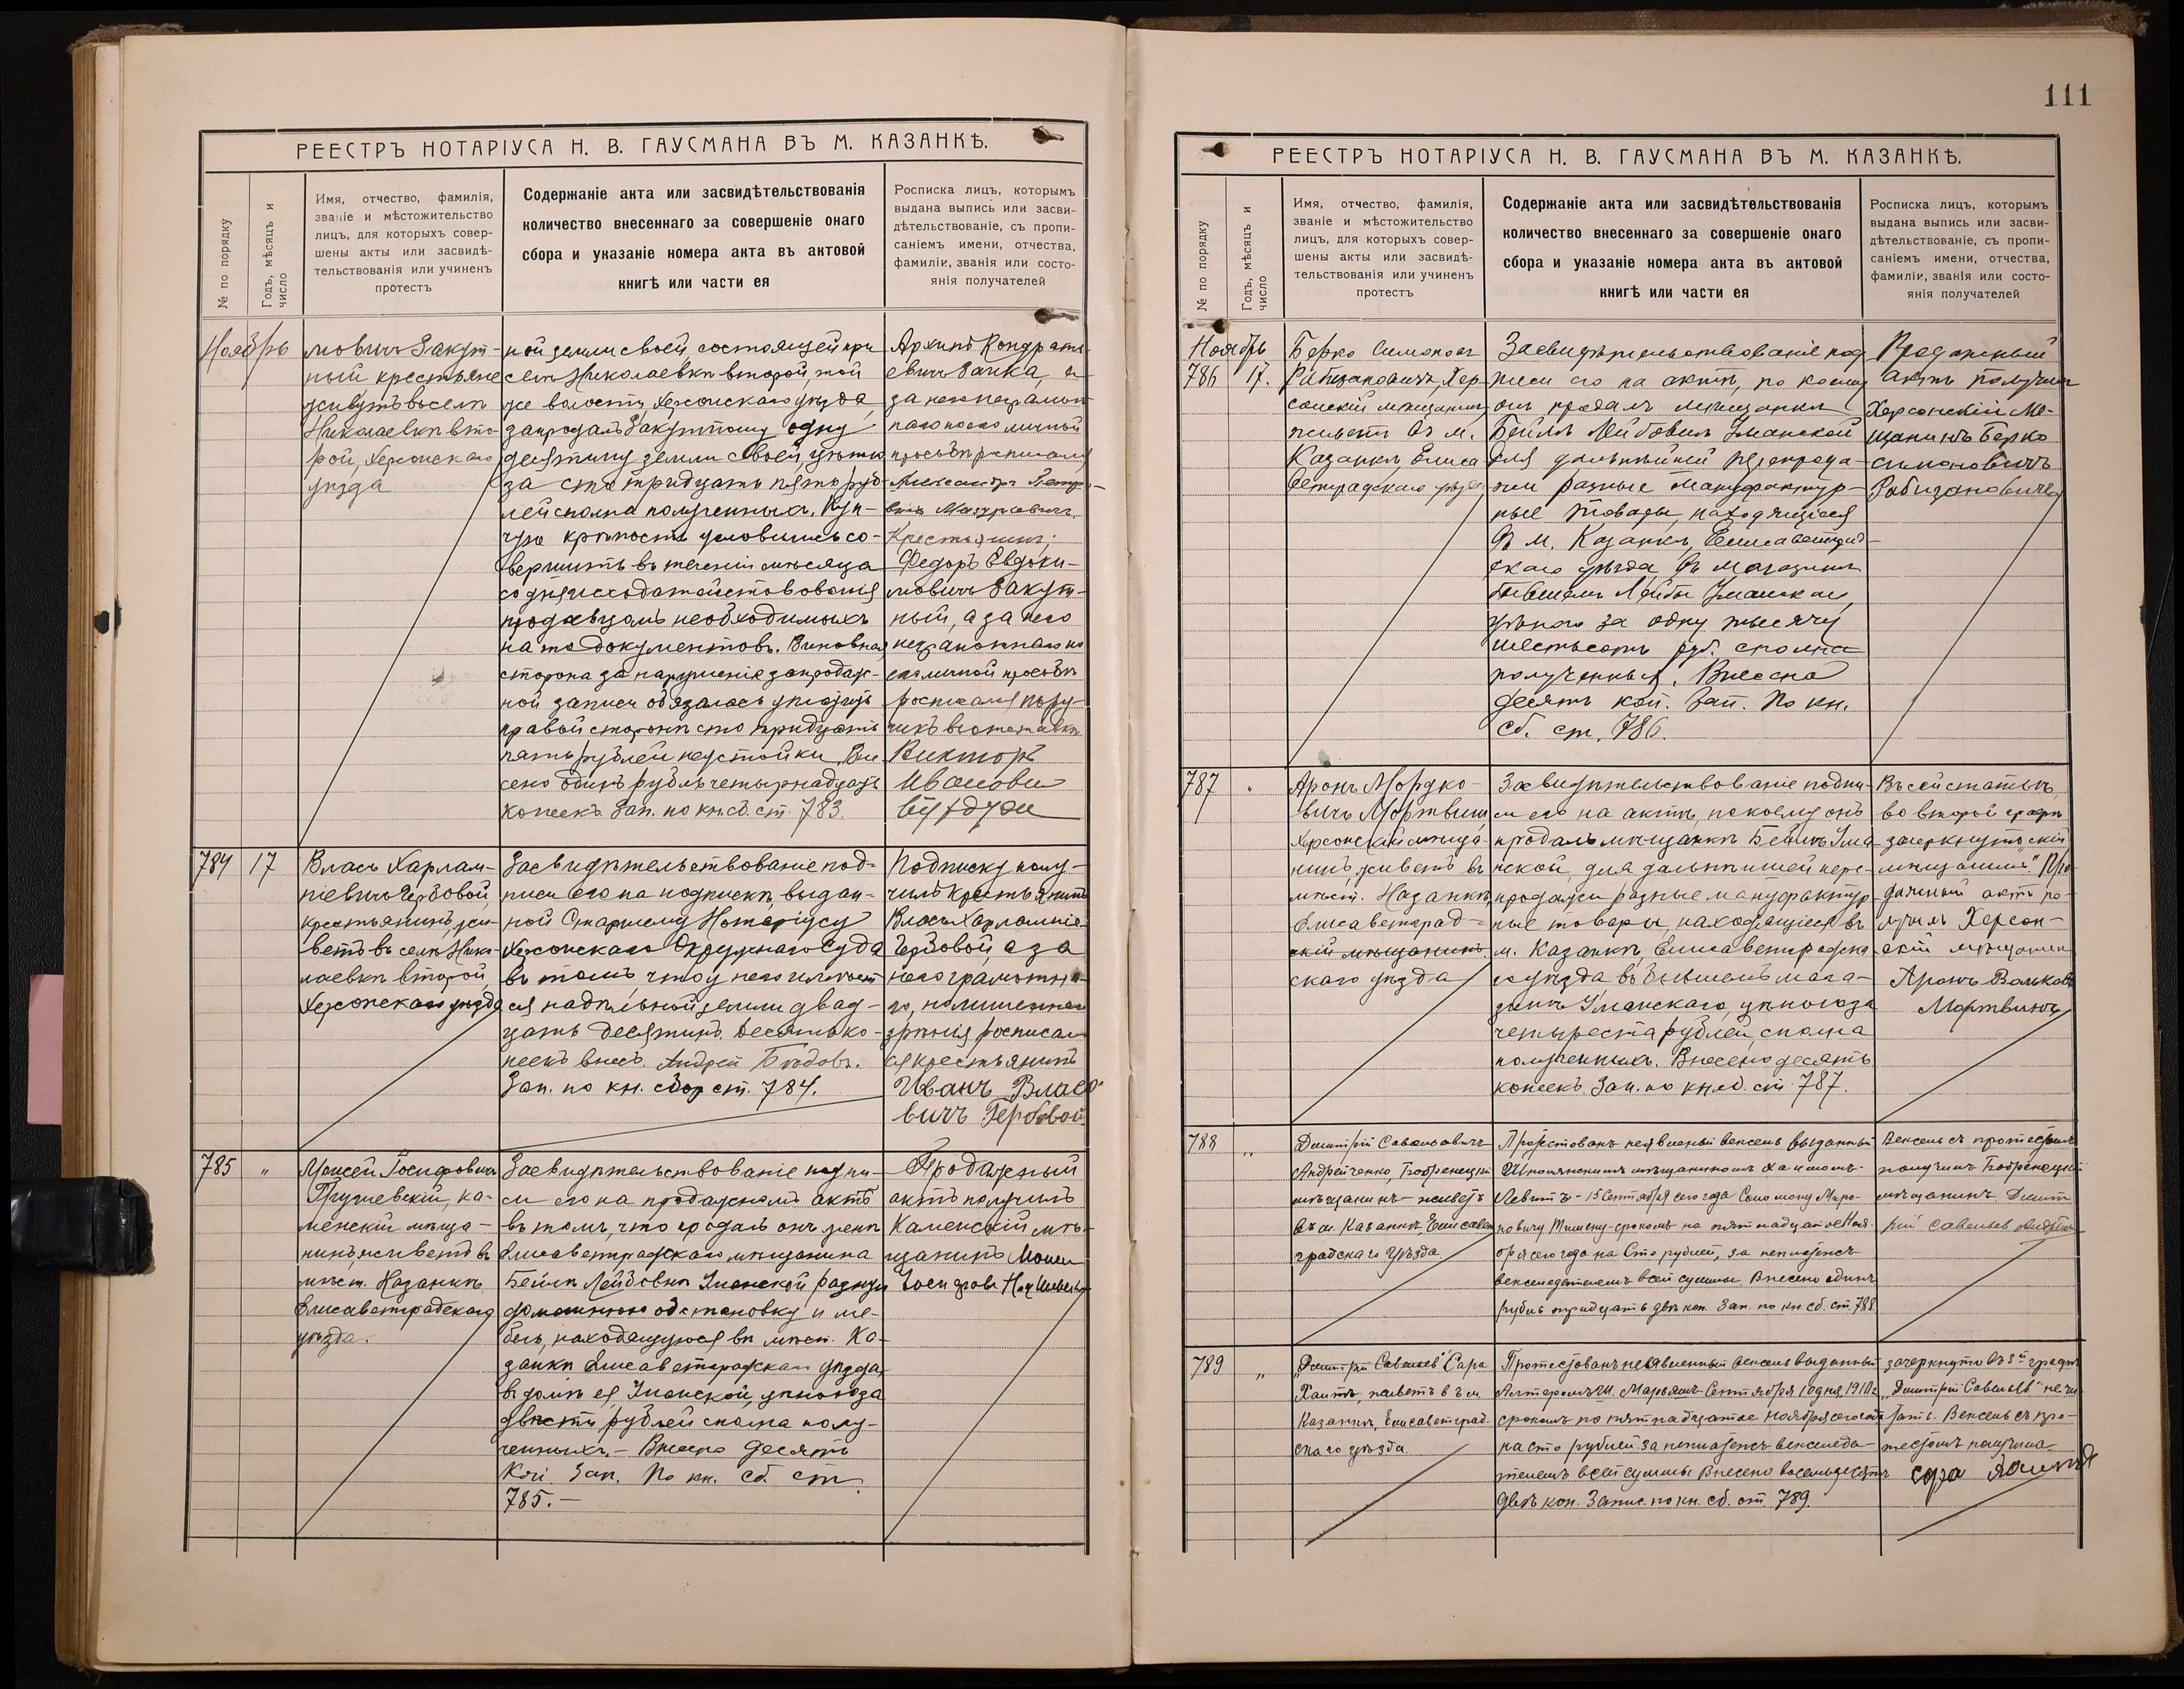 РЕЕСТРЪ НОТАРІУСА Н. В. ГАУСМАНА ВЪ М. КАЗАНКѢ.
№ по порядку
Годъ, мѣсяцъ и
число
Имя, отчество, фамилія,
званіе и мѣстожительство
лицъ, для которыхъ совер-
шены акты или засвидѣ-
тельствованія или учиненъ
протестъ
Содержаніе акта или засвидѣтельствованія
количество внесеннаго за совершеніе онаго
сбора и указаніе номера акта въ актовой
книгѣ или части ея
Росписка лицъ, которымъ
выдана выпись или засви-
дѣтельствованіе, съ пропи-
саніемъ имени, отчества,
фамиліи, званія или состо-
янія получателей
Ноябрь
мовичъ Закут-
ный крестьяне
живутъ въ селѣ
Николаевкѣ вто-
рой, Херсонскаго
уѣзда
ной земли своей, состоящей при
селѣ Николаевкѣ второй, той
же волости, Херсонскаго уѣзда,
запродалъ Закутному одну
десятину земли своей, цѣною
за сто тридцать пять руб-
лей сполна полученныхъ. Куп-
чую крѣпость условились со-
вершить въ теченіи мѣсяца
со дня исходатайствованія
продавцомъ необходимыхъ
на то документовъ. Виновная
сторона за нарушеніе запродаж-
ной записи обязалась уплатить
правой сторонѣ сто тридцать
пять рублей неустойки. Вне
сено одинъ рубль четырнадцать
копеекъ. Зап. по кн. сб. ст. 783.
Архипъ Кондрать-
евичъ Заика, а
за него неграмот
наго по его личной
просьбѣ росписался
Александръ Петро-
вичъ
Крестьянинъ:
Федоръ Евдоки-
мовичъ Закут-
ный, а за него
неграмотнаго по
его личной просьбѣ
росписался пору-
чикъ въ отставкѣ
Викторъ
Иванови
784
17
Власъ Харлам-
піевичъ Гербовой,
крестьянинъ, жи-
ветъ въ селѣ Нико-
лаевкѣ второй,
Херсонскаго уѣзда
Засвидѣтельствованіе под-
писи его на подпискѣ, выдан-
ной Старшему Нотаріусу
Херсонскаго Окружнаго Суда
въ томъ что у него имѣет
ся надѣльной земли двад-
цать десятинъ. Десять ко-
пеекъ внесъ. Андрей
Зап. по кн. сбор ст. 784.
Подписку полу-
чилъ крестьянинъ
Власъ Харлампіе-
Гербовой, а за
него грамотна-
го, но лишеннаго
зрѣнія росписал
ся крестьянинъ
Иванъ Власо
вичъ Гербовой
785
"
Моисей Іосифовичъ
ка-
менскій мѣща-
нинъ, живетъ въ
мѣст. Казанкѣ
Елисаветградскаго
уѣзда.
Засвидѣтельствованіе подпи-
си его на продажномъ актѣ
въ томъ, что продалъ онъ женѣ
Елисаветградскаго мѣщанина
Бейлѣ Лейбовнѣ Уманской разную
домашнюю обстановку и ме-
бель, находящуюся въ мѣст. Ка-
занкѣ Елисаветградскаго уѣзда,
въ домѣ ея, Уманской, цѣною за
двѣсти рублей сполна полу-
ченныхъ. - Внесено десять
Коп. Зап. По кн. сб. ст
785. -
Продажный
актъ получилъ
Каменскій мѣ-
щанинъ
111
РЕЕСТРЪ НОТАРІУСА Н. В. ГАУСМАНА ВЪ М. КАЗАНКѢ.
№ по порядку
Годъ, мѣсяцъ и
число
Имя, отчество, фамилія,
званіе и мѣстожительство
лицъ, для которыхъ совер-
шены акты или засвидѣ-
тельствованія или учиненъ
протестъ
Содержаніе акта или засвидѣтельствованія
количество внесеннаго за совершеніе онаго
сбора и указаніе номера акта въ актовой
книгѣ или части ея
Росписка лицъ, которымъ
выдана выпись или засви-
дѣтельствованіе, съ пропи-
саніемъ имени, отчества,
фамиліи, званія или состо-
янія получателей
Ноябрь
786
17.
Берко Симонов
Рабизановичъ, Хер-
сонскій мѣщанинъ,
живетъ въ м.
Казанкѣ, Елиса
ветградскаго уѣзда
Засвидѣтельствованіе под
писи его на актѣ, по коему
онъ продалъ мѣщанкѣ
Бейлѣ Лейбовнѣ Уманской
для дальнѣйшей перепрода-
жи разные мануфактур-
ные товары, находящіеся
въ м. Казанкѣ, Елисаветград-
скаго уѣзда въ магазинѣ
бывшемъ Лейбы Уманскаго,
цѣною за одну тысячу
шестьсотъ руб. сполна
полученныхъ. Внесена
десять коп. Зап. По кн.
сб. ст. 786.
Продажный
актъ получилъ
Херсонскій Мѣ-
щанинъ Берко
Симоновичъ
Рабизановичъ
787
"
Аронъ Мордко-
вичъ Мортвинъ
Херсонскій мѣща-
нинъ, живетъ въ
мѣст. Казанкѣ,
Елисаветград-
скій мѣщанинъ
скаго уѣзда
Засвидѣтельствованіе подпи-
си его на актѣ, по коему онъ
продалъ мѣщанкѣ Бейлѣ Ума
нской, для дальнѣйшей пере-
продажи разные мануфактур-
ные товары, находящіеся въ
м. Казанкѣ, Елисаветградска
го уѣзда въ бывшемъ мага-
зинѣ Уманскаго, цѣною за
четыреста рублей, сполна
полученныхъ. Внесено десять
копеекъ. Зап. по кн. сб. ст. 787.
Въ сей статьѣ,
во второй графѣ
зачеркнуто „скій
мѣщанинъ". Про
дажный актъ по-
лучилъ Херсон-
скій мѣщанинъ
Аронъ
Мортвинъ
788
"
Дмитрій Савельевичъ
Андрейченко, Бобринецкій
мѣщанинъ - живетъ
въ м. Казанкѣ, Елисавет
градскаго уѣзда
Протестованъ неявленный вексель выданный
мѣщаниномъ Хаимомъ
- 15 Сентября сего года Соломону
срокомъ на пятнадцатое Ноя-
бря сего года на Сто рублей, за неплатежъ
векселедателемъ всей суммы. Внесено одинъ
рубль тридцать двѣ коп. Зап. по кн сб. ст. 788
Вексель съ протестомъ
получилъ Бобринецкій
мѣщанинъ Дмит
рій Савельев
789
"
„Дмитрій Савельевъ" Сара
живетъ въ м.
Казанкѣ, Елисаветград-
скаго уѣзда
Протестованъ неявленный вексель выданный
Сентября 1 дня, 1910 г
срокомъ по пятнадцатое Ноября сего года
на сто рублей за неплатежъ векселеда-
телемъ всей суммы Внесено восемьдесятъ
двѣ коп. Запис. по кн. сб. ст. 789.
зачеркнуто въ 3й графѣ
„Дмитрій Савельевъ" не чи
тать. Вексель съ про-
тестомъ получила
Сара